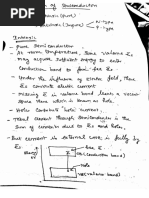 of Semiconductor
(Pure)
(Impure)
n-type
p-type
Intrinsic
Pure Semiconductor
At room Temperature, Some valence Es
may acquire sufficient energy to enter
conduction band to form free Es.
Under the influence of electric field, then
Es constitute electric current
Missing E in valence band leaves a vacant
space there which is known as hole.
Holes contribute hole current.
Total current through Semiconductor is the
Sum of currents due to Es and holes.
But current in external wire is fully by
Es.
free E
(conduction band)
hole
(valence band)